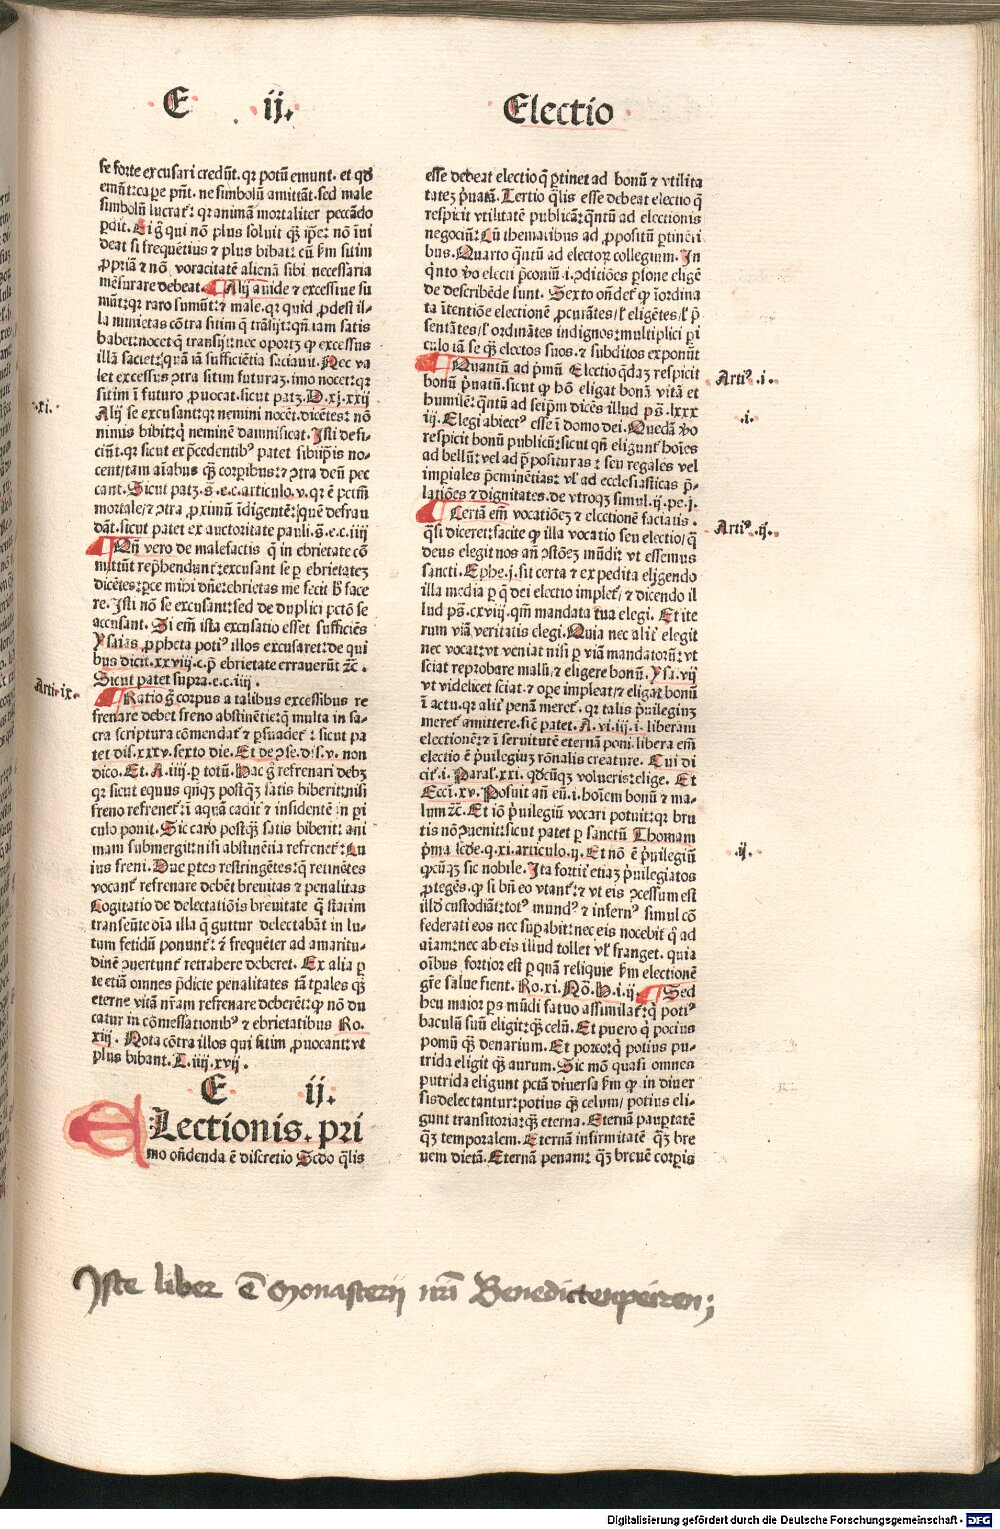 E ij.
Electio
se forte excusari credũt. qꝛ potũ emunt. et qđ
emũt: cape pñt. ne simbolũ amittãt. sed male
simbolũ lucrat᷑: qꝛ animã moꝛtaliter peccãdo
ꝑdit. Eigꝰ qui nõ plus soluit qꝫ ip̃e: nõ ĩui
deat si frequẽtius ⁊ plus bibat: cũ ẜm sitim
ꝓpꝛiã ⁊ nõ voꝛacitatẽ alienã sibi necessaria
mẽsurare debeat. Alij auide ⁊ excessiue su
mũt: qꝛ raro sumũt: ⁊ male. qꝛ quid ꝓdest il-
la nimietas cõtra sitim q̃ trãsijt: qñ iam satis
habet: nocet q̃ transijt: nec opoꝛtꝫ ꝙ excessus
illã saciet: quã iã sufficiẽtia saciauit. Nec va
let excessus ꝯtra sitim futuraꝫ. imo nocet: qꝛ
sitim ĩ futuro ꝓuocat. sicut patꝫ. D. xj. xxij
Alij se excusant: qꝛ nemini nocẽt. dicẽtes: nõ
nimus bibit: qꝛ neminẽ damnificat. Isti defi-
ciũt. qꝛ sicut ex p̃cedentibꝰ patet sibiip̃is no-
cent/tam aĩabus qꝫ coꝛpibus: ⁊ ꝯtra deũ pec
cant. Sicut patꝫ. s̃. e. c. articulo. v. qꝛ ẽ pctm̃
moꝛtale/⁊ ꝯtra ꝓximũ ĩdigentẽ: quẽ defrau
dãt. sicut patet ex auctoꝛitate pauli. s̃. e. c. iiij
Qñ vero de malefactis q̃ in ebꝛietate cõ
mittũt rep̃hendunt᷑: excusant se ꝑ ebꝛietateꝫ
dicẽtes: ꝑce mihi dñe: ebꝛietas me fecit ħ face
re. Isti nõ se excusant: sed de duplici pctõ se
accusant. Si em̃ ista excusatio esset sufficiẽs
Ysaias ꝓpheta potiꝰ illos excusaret: de qui
bus dicit. xxviij. c. p̃ ebꝛietate errauerũt ⁊c̃.
Sicut patet supra. e. c. iiij.
Ratio g̃ coꝛpus a talibus excessibus re
frenare debet freno abstinẽtie: q̃ multa in sa-
cra scriptura cõmendat᷑ ⁊ ꝑsuadet᷑: sicut pa
tet dis. xxxv. sexto die. Et de ꝯse. d. v. non
dico. Et. A. iiij. ꝑ totũ. Hac g̃ refrenari debꝫ
qꝛ sicut equus qñqꝫ postqꝫ satis biberit: nisi
freno refrenet᷑: ĩ aquã cadit ⁊ insidentẽ in ꝑi
culo ponit. Sic caro postqꝫ satis biberit: ani
mam submergit: nisi abstinẽtia refrenet᷑: Cu
ius freni. Due ꝑtes restringẽtes: q̃ retinẽtes
vocant᷑ refrenare debẽt bꝛeuitas ⁊ penalitas
Cogitatio de delectatiõis bꝛeuitate q̃ statim
transeũte oĩa illa q̃ guttur delectabãt in lu-
tum fetidũ ponunt᷑: ⁊ frequẽter ad amaritu-
dinẽ ꝯuertunt᷑ retrahere deberet. Ex alia ꝑ
te etiã omnes p̃dicte penalitates tã tꝑales qꝫ
eterne vitã nr̃am refrenare deberẽt: ꝙ nõ du
catur in cõmessationibꝰ ⁊ ebꝛietatibus Ro.
xiij. Nota cõtra illos qui sitim ꝓuocant: vt
plus bibant. L. iiij. xvij.
E ij.
ELectionis. pꝛi
mo oñdenda ẽ discretio Scđo q̃lis
esse debeat electio q̃ ꝑtinet ad bonũ ⁊ vtilita
tateꝫ p̃uatã. Tertio q̃lis esse debeat electio q̃
respicit vtilitatẽ publicã: q̃ntũ ad electionis
negociũ: Cũ thematibus ad ꝓpositũ ꝑtinẽti
bus. Quarto q̃ntũ ad electoꝝ collegium. In
q̃nto ꝟo electi p̃coniũ. i. ꝯditiões ꝑsone eligẽ
de describẽde sunt. Sexto oñdet᷑ ꝙ ĩoꝛdina
ta ĩtentiõe electionẽ ꝓcurãtes/ł eligẽtes/ł p̃
sentãtes/ł oꝛdinãtes indignos: multiplici ꝑi
culo tã se qꝫ electos suos. ⁊ subditos exponũt
Quantũ ad pꝛimũ Electio q̃daꝫ respicit
bonũ p̃uatũ. sicut ꝙ hõ eligat bonã vitã et
humilẽ: q̃ntũ ad seip̃m dicẽs illud ps̃. lxxx
iij. Elegi abiectꝰ esse ĩ domo dei. Quedã ꝟo
respicit bonũ publicũ: sicut qñ eligunt᷑ hoĩes
ad bellũ: vel ad p̃posituras: seu regales vel
imꝑiales p̃eminẽtias: vł ad ecclesiasticas p̃-
latiões ⁊ dignitates. de vtroqꝫ simul. ij. pe. j.
Certã em̃ vocationẽꝫ ⁊ electionẽ faciatis.
q̃si diceret: facite ꝙ illa vocatio seu electio/q̃
deus elegit nos añ ꝯstõeꝫ mũdi: vt essemus
sancti. Ephe. j. sit certa ⁊ expedita eligendo
illa media ꝑ q̃ dei electio implet᷑/⁊ dicendo il
lud ps̃. cxviij. qm̃ mandata tua elegi. Et ite
rum viã veritatis elegi. Quia nec alit᷑ elegit
nec vocat: vt veniat nisi ꝑ viã mandatoꝛũ: vt
sciat repꝛobare malũ/⁊ eligere bonũ. Ysa. vij
vt videlicet sciat. ⁊ oꝑe impleat/⁊ eligat bonũ
ĩ actu. qꝛ alit᷑ penã meret᷑. qꝛ talis p̃uilegiuꝫ
meret᷑ amittere. sic̃ patet. A. vi. iij. i. liberam
electionẽ: ⁊ ĩ seruitutẽ eternã poni. libera em̃
electio ẽ p̃uilegiuꝫ rõnalis creature. Cui di
cit᷑. i. Paral̃. xxi. qđcũqꝫ volueris: elige. Et
Ecc̃i. xv. Posuit añ eũ. i. hoĩem bonũ ⁊ ma-
lum ⁊c̃. Et iõ p̃uilegiũ vocari potuit: qꝛ bꝛu
tis nõ ꝯuenit: sicut patet ꝑ sanctũ Thomam
p̃ma scđe. q. xi. articulo. ij. Et nõ ẽ p̃uilegiũ
qꝛcũqꝫ sic nobile. Ita foꝛtit᷑ etiaꝫ p̃uilegiatos
ꝓtegẽs. ꝙ si bñ eo vtant᷑: ⁊ vt eis ꝯcessum est
illđ custodiãt: totꝰ mundꝰ ⁊ infernꝰ simul cõ
federati eos nec suꝑabit: nec eis nocebit q̃ ad
aĩam: nec ab eis illud tollet vł franget. quia
oĩbus foꝛtioꝛ est ꝑ quã reliquie ẜm electionẽ
gr̃e salue fient. Ro. xi. Nõ. H. i. ij. Sed
heu maioꝛ ꝑs mũdi fatuo assimilat᷑: q̃ potiꝰ
baculũ suũ eligit: qꝫ celũ. Et puero q̃ pocius
pomũ qꝫ denarium. Et poꝛco: q̃ potius pu-
trida eligit qꝫ aurum. Sic mõ quasi omnes
putrida eligunt pctã diuersa ẜm ꝙ in diuer
sis delectantur: potius qꝫ celum/ potius eli-
gunt transitoꝛia: qꝫ eterna. Eternã pauꝑtatẽ
qꝫ tempoꝛalem. Eternã infirmitatẽ qꝫ bꝛe
uem dietã. Eternã penam: qꝫ bꝛeuẽ coꝛꝑis
.xi.
Arti. ix.
Artiꝰ .i.
.i.
Artiꝰ .ij.
.ij.
Iste liber ẽ Monasterij nr̃i Benedictenpeirren;
Digitalisierung gefördert durch die Deutsche Forschungsgemeinschaft - DFG